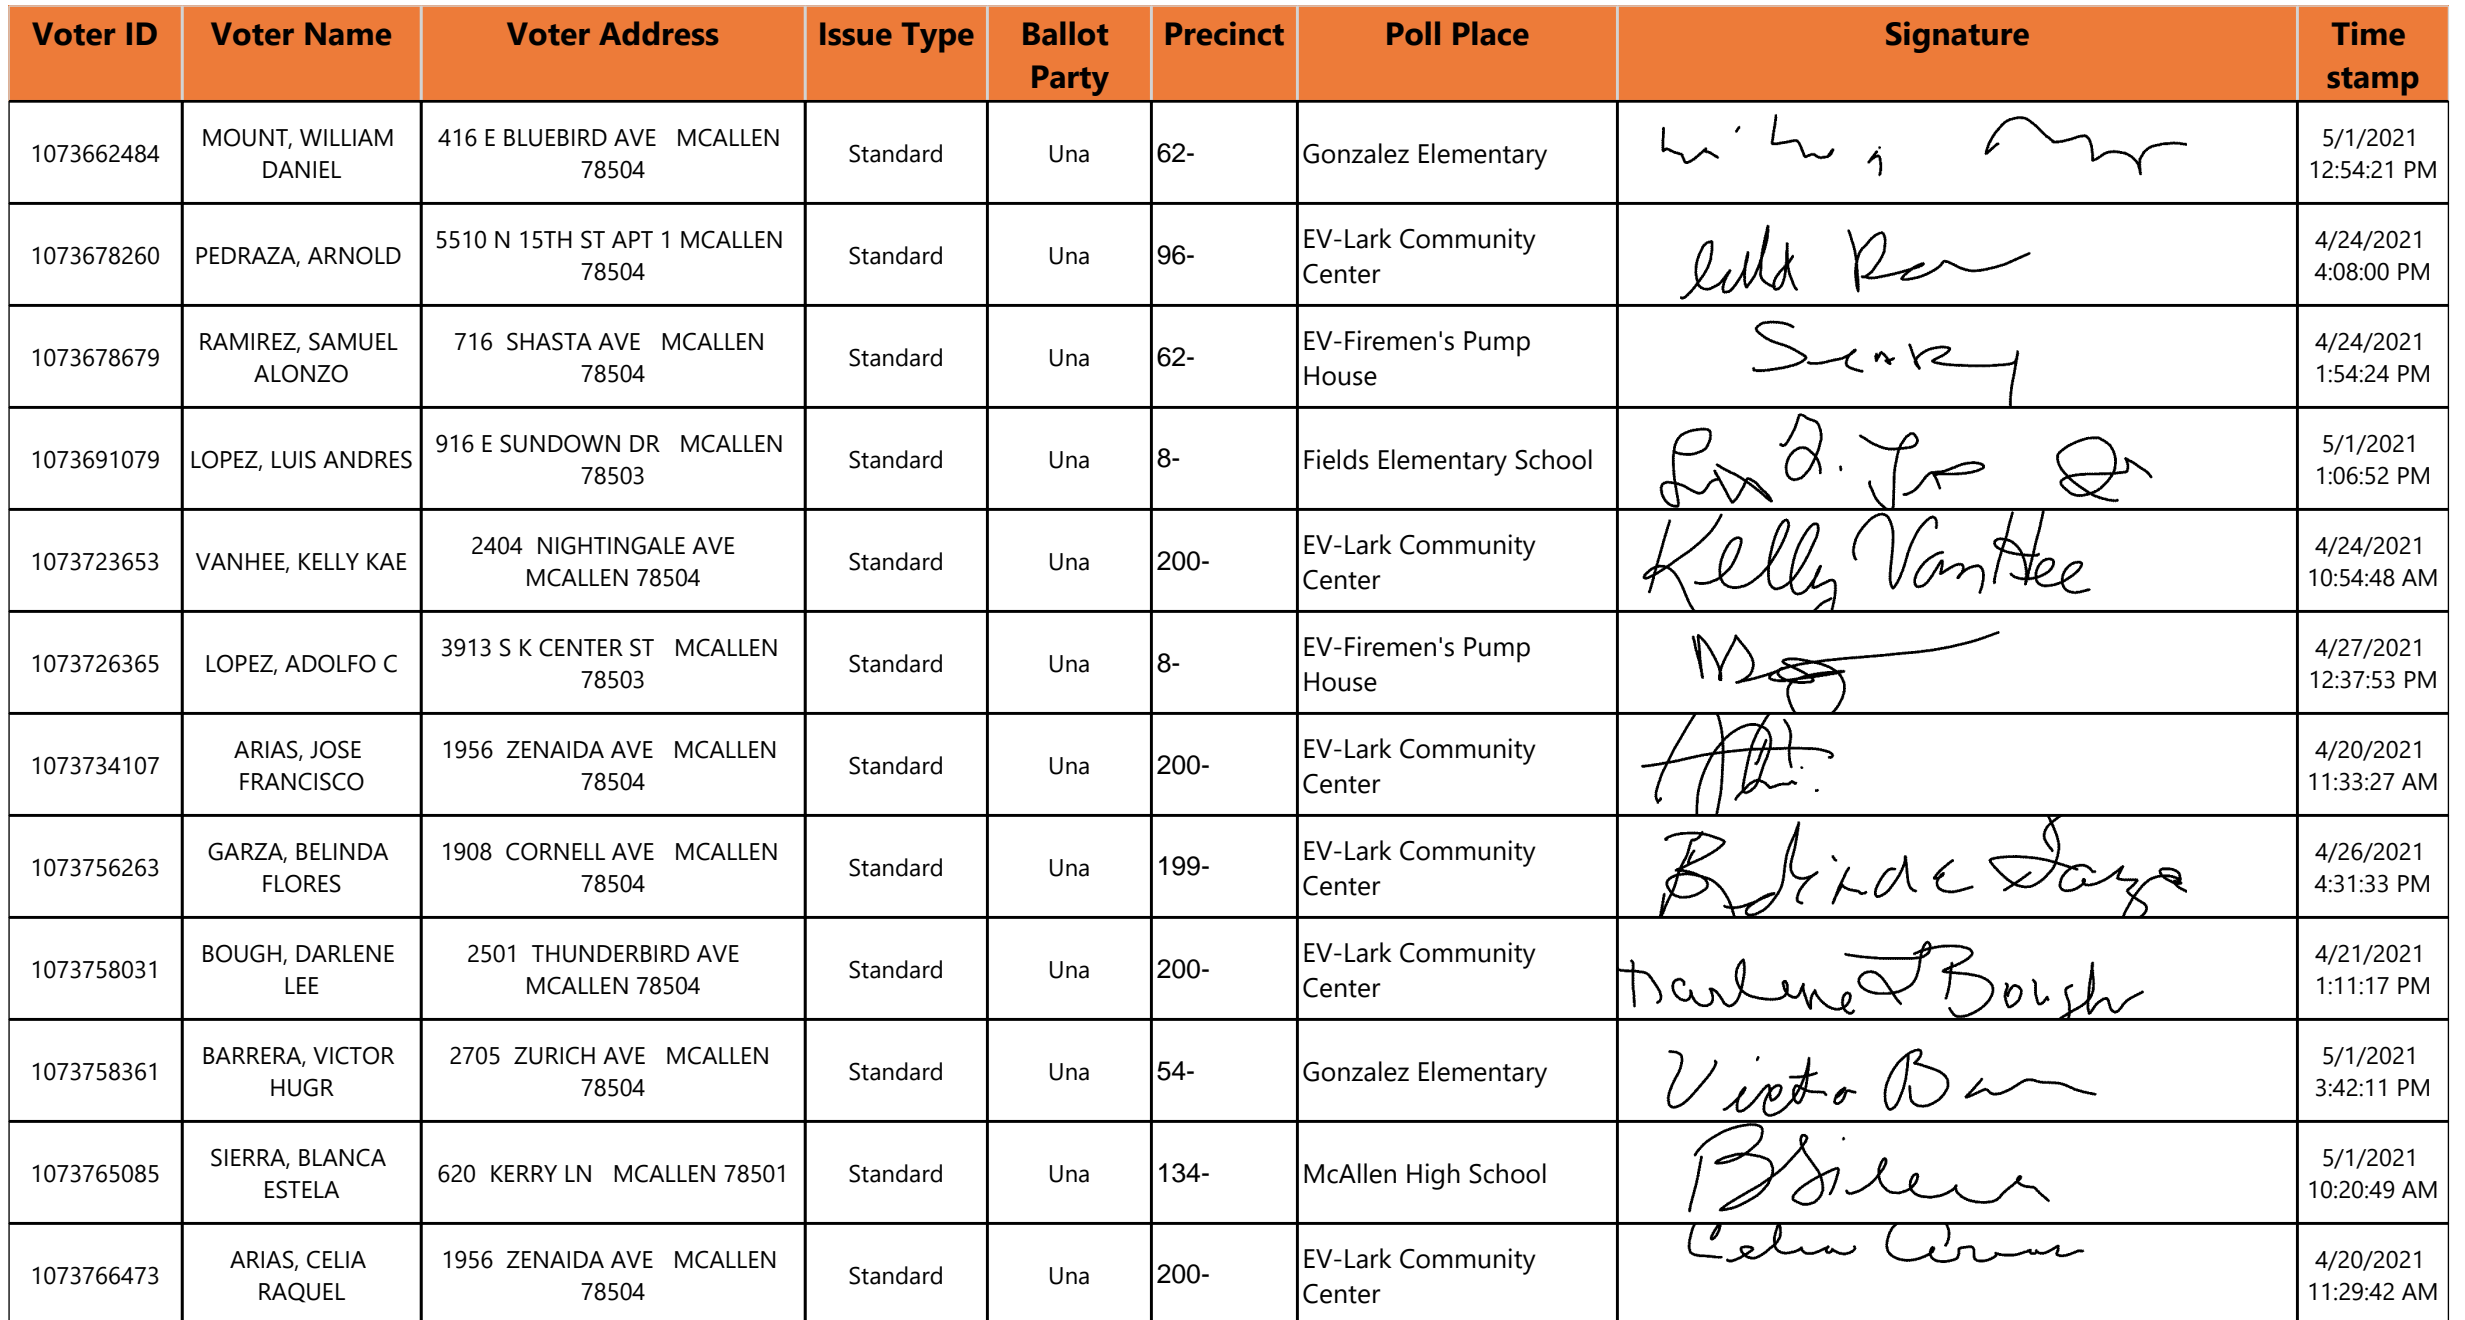 Voter ID Voter Name Voter Address Issue Type Ballot Party Precinct Poll Place Signature Time stamp
1073662484 MOUNT, WILLIAM DANIEL 416 E BLUEBIRD AVE MCALLEN 78504 Standard Una 62- Gonzalez Elementary 5/1/2021 12:54:21 PM
1073678260 PEDRAZA, ARNOLD 5510 N 15TH ST APT 1 MCALLEN 78504 Standard Una 96- EV-Lark Community Center 4/24/2021 4:08:00 PM
1073678679 RAMIREZ, SAMUEL ALONZO 716 SHASTA AVE MCALLEN 78504 Standard Una 62- EV-Firemen's Pump House 4/24/2021 1:54:24 PM
1073691079 LOPEZ, LUIS ANDRES 916 E SUNDOWN DR MCALLEN 78503 Standard Una 8- Fields Elementary School 5/1/2021 1:06:52 PM
1073723653 VANHEE, KELLY KAE 2404 NIGHTINGALE AVE MCALLEN 78504 Standard Una 200- EV-Lark Community Center Kelly VanHee 4/24/2021 10:54:48 AM
1073726365 LOPEZ, ADOLFO C 3913 S K CENTER ST MCALLEN 78503 Standard Una 8- EV-Firemen's Pump House 4/27/2021 12:37:53 PM
1073734107 ARIAS, JOSE FRANCISCO 1956 ZENAIDA AVE MCALLEN 78504 Standard Una 200- EV-Lark Community Center 4/20/2021 11:33:27 AM
1073756263 GARZA, BELINDA FLORES 1908 CORNELL AVE MCALLEN 78504 Standard Una 199- EV-Lark Community Center Belinda Garza 4/26/2021 4:31:33 PM
1073758031 BOUGH, DARLENE LEE 2501 THUNDERBIRD AVE MCALLEN 78504 Standard Una 200- EV-Lark Community Center Darlene L Bough 4/21/2021 1:11:17 PM
1073758361 BARRERA, VICTOR HUGR 2705 ZURICH AVE MCALLEN 78504 Standard Una 54- Gonzalez Elementary 5/1/2021 3:42:11 PM
1073765085 SIERRA, BLANCA ESTELA 620 KERRY LN MCALLEN 78501 Standard Una 134- McAllen High School 5/1/2021 10:20:49 AM
1073766473 ARIAS, CELIA RAQUEL 1956 ZENAIDA AVE MCALLEN 78504 Standard Una 200- EV-Lark Community Center 4/20/2021 11:29:42 AM